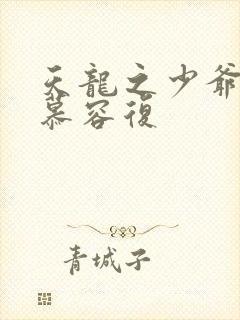 天龍之少爺
慕容復
青城子